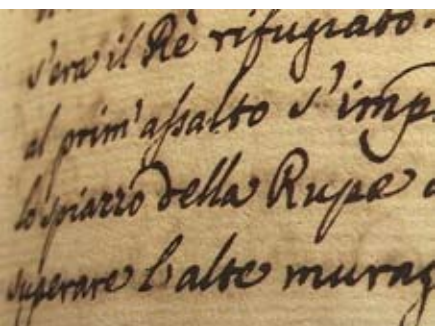 s'era il Rè rifugiato.
al prim'assalto s'imp
lo spiazzo della Rupe
superare l'alte murag